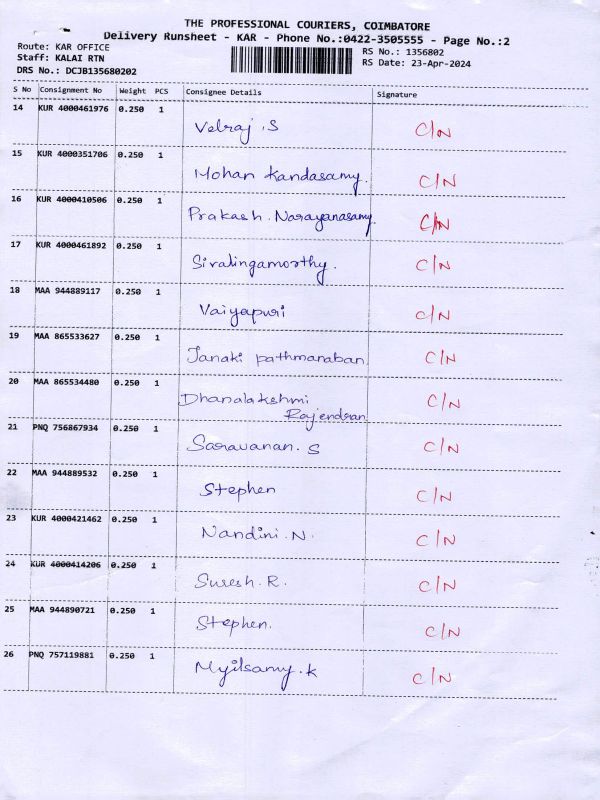 THE PROFESSIONAL COURIERS, COIMBATORE
Delivery Runsheet - KAR - Phone No.:0422-3505555 - Page No.:2
Route: KAR OFFICE
Staff: KALAI RTN
DRS No.: DCJB135680202
RS No.: 1356802
RS Date: 23-Apr-2024
S No Consignment No Weight PCS Consignee Details Signature
14 KUR 4000461976 0.250 1 Velraj .S C/N
15 KUR 4000351706 0.250 1 Mohan Kandasamy. C/N
16 KUR 4000410506 0.250 1 Prakash. Narayanasamy. C/N
17 KUR 4000461892 0.250 1 Sivalingamorthy. C/N
18 MAA 944889117 0.250 1 Vaiyapuri C/N
19 MAA 865533627 0.250 1 Janaki pathmanaban C/N
20 MAA 865534480 0.250 1 Dhanalakshmi C/N
Rajendran
21 PNQ 756867934 0.250 1 Saravanan. S C/N
22 MAA 944889532 0.250 1 Stephen C/N
23 KUR 4000421462 0.250 1 Nandini .N. C/N
24 KUR 4000414206 0.250 1 Suresh. R. C/N
25 MAA 944890721 0.250 1 Stephen. C/N
26 PNQ 757119881 0.250 1 Myilsamy. K C/N